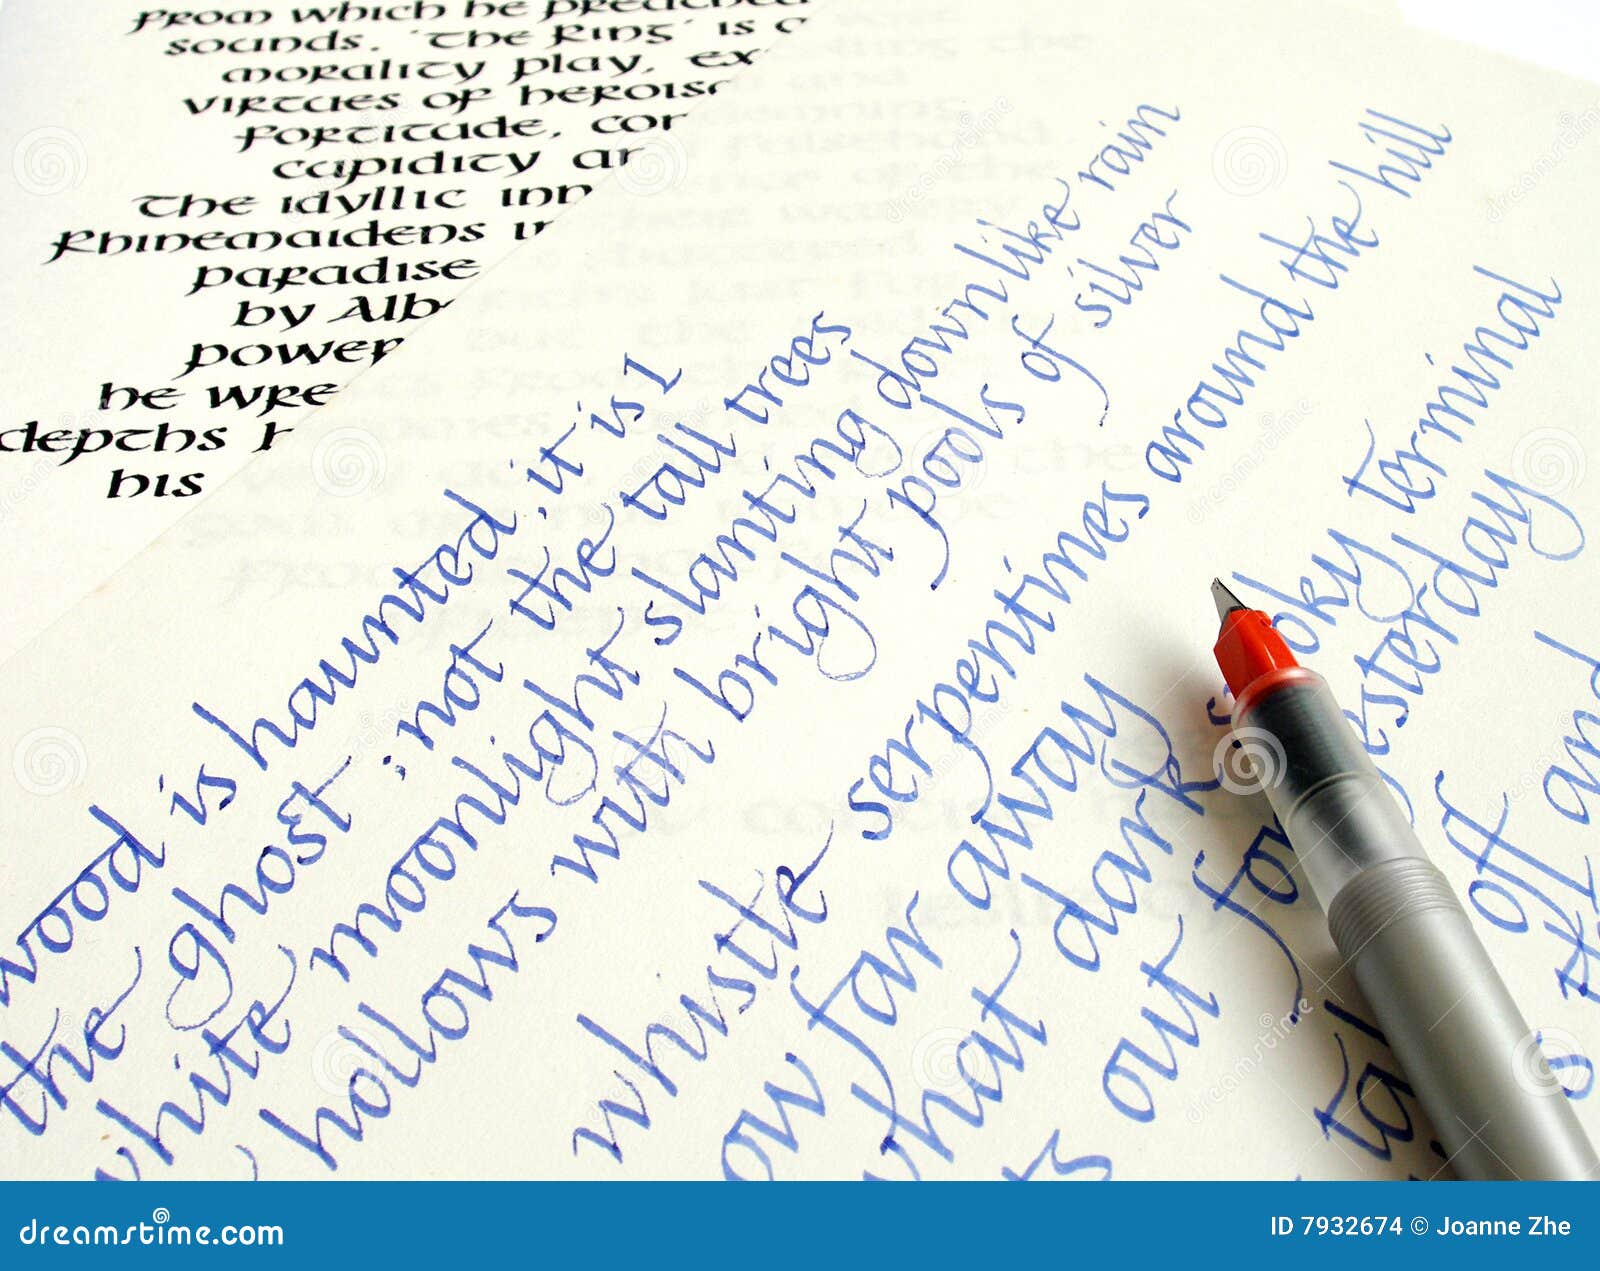 from which he preached
sounds. 'The Ring' is
morality play, ex
virtues of herois
fortitude, cor
cupidity an
The idyllic inn
Rhinemaidens in
paradise
by Albe
power
he wre
depths h
his
wood is haunted; it is I
the ghost; not the tall trees
white moonlight slanting down like rain
hollows with bright pools of silver
whistle serpentines around the hill
ow far away
what dark smoky terminal
ts out for yesterday
off and
dreamstime.com
ID 7932674 © Joanne Zhe